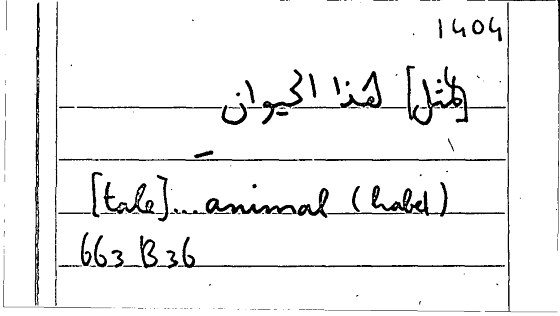 1404
[مثل] لهذا الحيوان
[tale]... animal (habet)
663 B 36